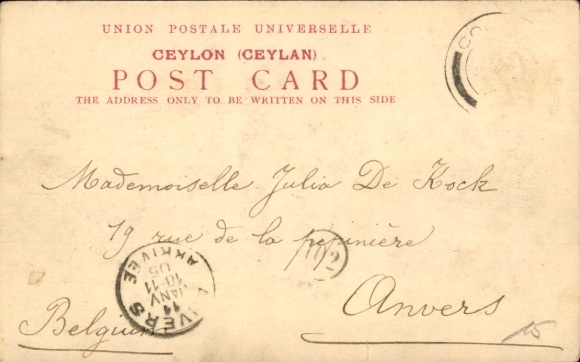 UNION POSTALE UNIVERSELLE
CEYLON (CEYLAN)
POST CARD
THE ADDRESS ONLY TO BE WRITTEN ON THIS SIDE
Mademoiselle Julia De Kock
19 rue de la pepinière
Anvers
Belgium
ANVERS
ARRIVÉE
14
JANV
10-11
05
15